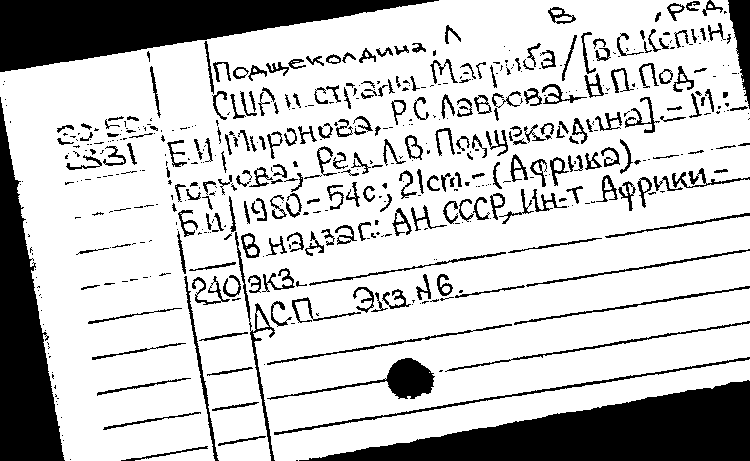 Подщеколдина, Л В , ред.
США и страны Магриба / [В.С. Кепин,
Е.И. Миронова, Р.С. Лаврова, Н.П. Под-
горнова; Ред. Л.В. Подщеколдина]. – М.:
Б.и., 1980. – 54с.; 21cm. – (Африка).
В надзаг.: АН СССР, Ин-т Африки. –
240 экз.
ДСП. Экз. №6.
2331